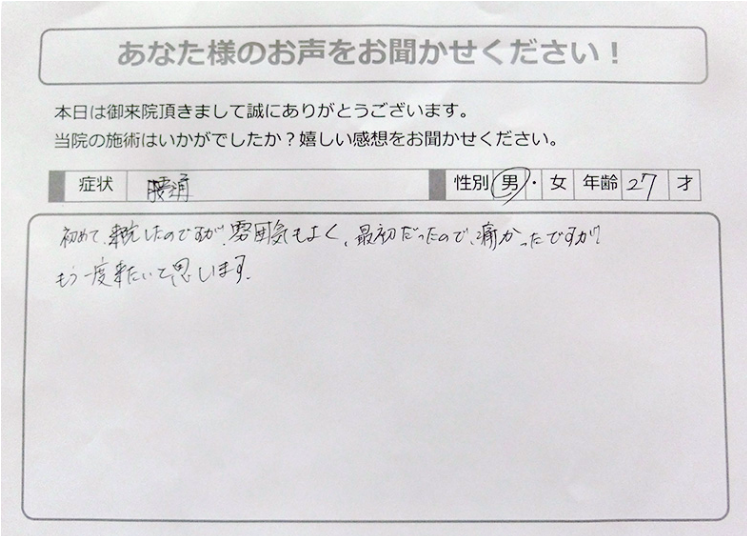 あなた様のお声をお聞かせください！
本日は御来院頂きまして誠にありがとうございます。
当院の施術はいかがでしたか？嬉しい感想をお聞かせください。
症状 腰痛 性別 男・女 年齢 27 才
初めて来院したのですが、雰囲気もよく、最初だったので、痛かったですが
もう一度来たいと思います。